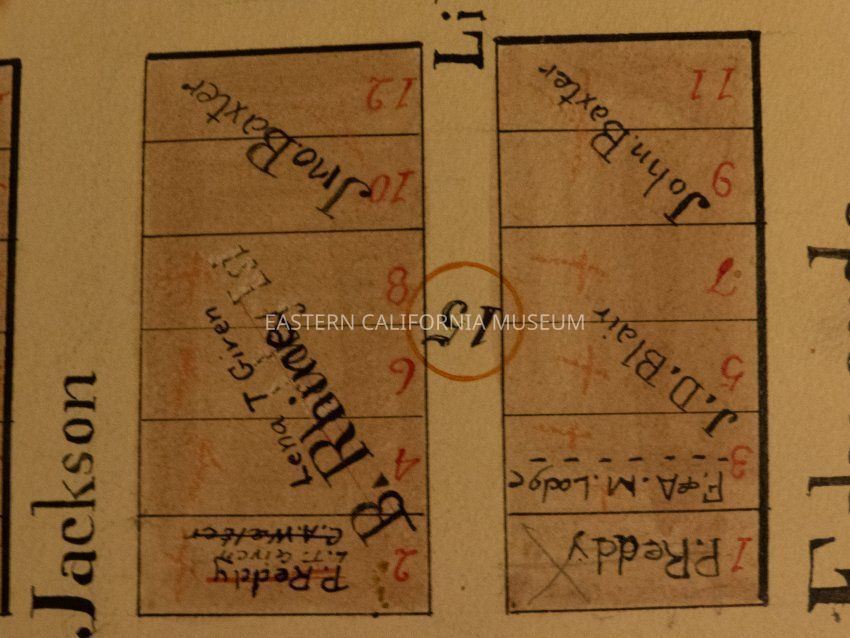 Li
12
Jno. Baxter
10
8
Lena T Given
B. Rhine
6
4
2
C.A. Walker
L.T. GIVEN
P. Reddy
15
11
John. Baxter
9
7
J. D. Blair
5
3
F. & A. M. Lodge
1
P. Reddy
Jackson
EASTERN CALIFORNIA MUSEUM